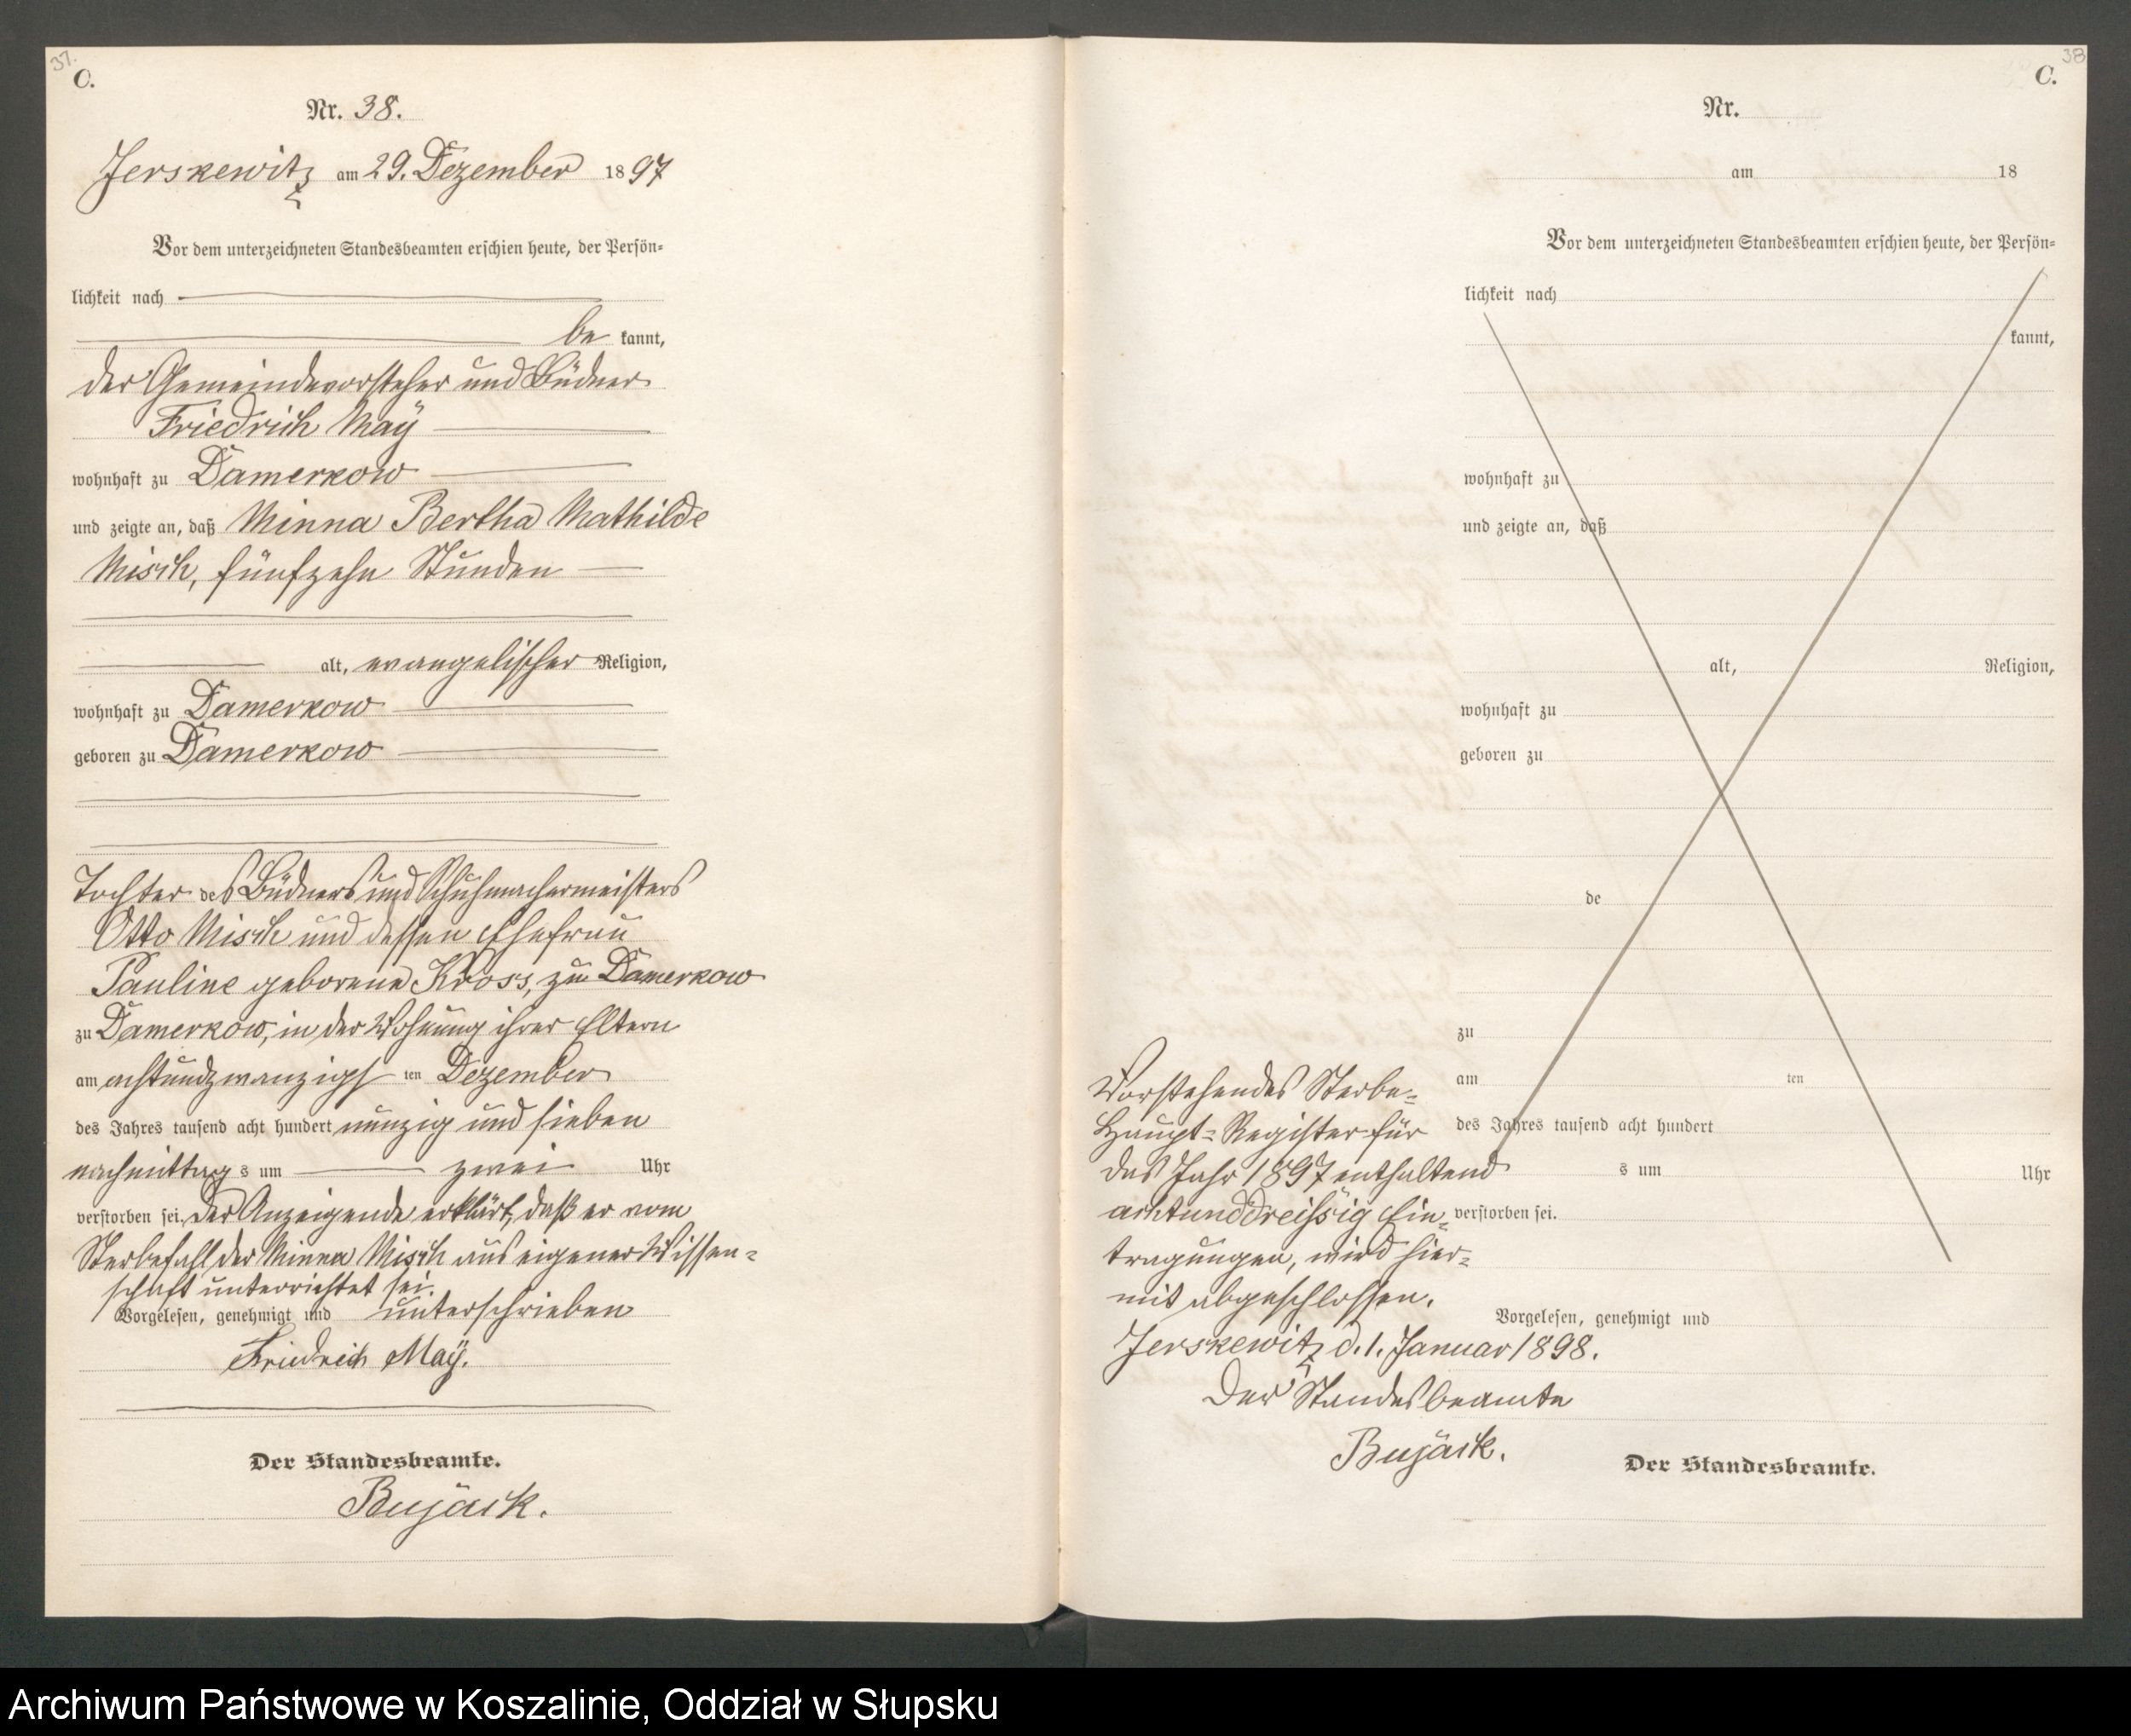 37.
C.
Nr. 38.
Jerskewitz am 29. Dezember 1897
Vor dem unterzeichneten Standesbeamten erschien heute, der Persön-
lichkeit nach
be kannt,
der Gemeindevorsteher und Büdner
Friedrich Maÿ
wohnhaft zu Damerkow
und zeigte an, daß Minna Bertha Mathilde
Misch, fünfzehn Stunden
alt, evangelischer Religion,
wohnhaft zu Damerkow
geboren zu Damerkow
Tochter des Büdners und Schuhmachermeisters
Otto Misch und dessen Ehefrau
Pauline geborene Kross, zu Damerkow
zu Damerkow, in der Wohnung ihrer Eltern
am achtundzwanzigsten Dezember
des Jahres tausend acht hundert neunzig und sieben
nachmittags um zwei Uhr
verstorben sei. Der Anzeigende erklärt, daß er vom
Sterbefall der Minna Misch aus eigener Wissen-
schaft unterrichtet sei.
Vorgelesen, genehmigt und unterschrieben
Friedrich Maÿ.
Der Standesbeamte.
Bujäck.
38
C.
Nr.
am 18
Vor dem unterzeichneten Standesbeamten erschien heute, der Persön-
lichkeit nach
kannt,
wohnhaft zu
und zeigte an, daß
alt, Religion,
wohnhaft zu
geboren zu
de
zu
am ten
des Jahres tausend acht hundert
s um Uhr
verstorben sei.
Vorgelesen, genehmigt und
Der Standesbeamte.
Vorstehendes Sterbe-
Haupt-Register für
das Jahr 1897 enthaltend
achtunddreissig Ein-
tragungen, wird hier-
mit abgeschlossen.
Jerskewitz d. 1. Januar 1898.
Der Standesbeamte
Bujäck.
Archiwum Państwowe w Koszalinie, Oddział w Słupsku